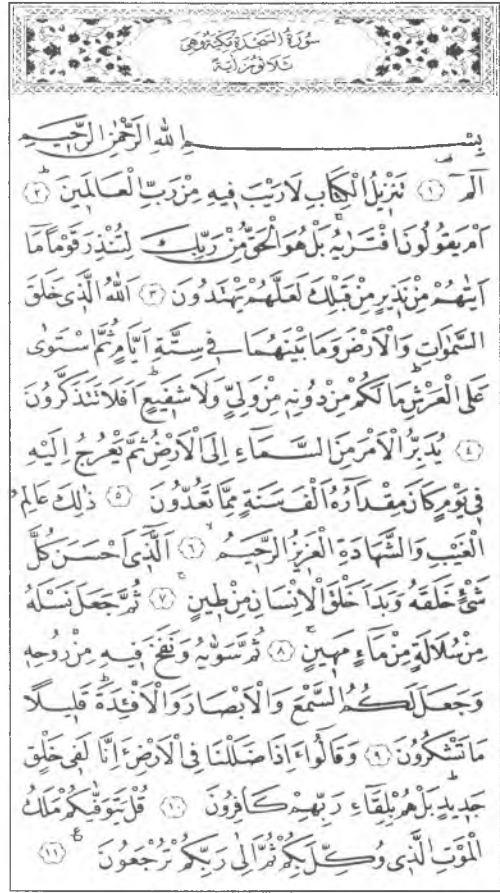 سُورَةُ السَّجْدَةِ مَكِّيَّةٌ وَهِيَ
ثَلَاثُونَ اٰيَةً
بِسْمِ اللهِ الرَّحْمٰنِ الرَّحِيمِ
الٓمٓ ﴿١﴾ تَنْزِيلُ الْكِتَابِ لَا رَيْبَ فِيهِ مِنْ رَبِّ الْعَالَمِينَ ﴿٢﴾
اَمْ يَقُولُونَ افْتَرٰيهُ بَلْ هُوَ الْحَقُّ مِنْ رَبِّكَ لِتُنْذِرَ قَوْمًا مَا
اَتٰيهُمْ مِنْ نَذِيرٍ مِنْ قَبْلِكَ لَعَلَّهُمْ يَهْتَدُونَ ﴿٣﴾ اَللهُ الَّذِى خَلَقَ
السَّمٰوَاتِ وَالْاَرْضَ وَمَا بَيْنَهُمَا فِى سِتَّةِ اَيَّامٍ ثُمَّ اسْتَوٰى
عَلَى الْعَرْشِ مَا لَكُمْ مِنْ دُونِهِ مِنْ وَلِىٍّ وَلَا شَفِيعٍ اَفَلَا تَتَذَكَّرُونَ
﴿٤﴾ يُدَبِّرُ الْاَمْرَ مِنَ السَّمَاءِ اِلَى الْاَرْضِ ثُمَّ يَعْرُجُ اِلَيْهِ
فِى يَوْمٍ كَانَ مِقْدَارُهُ اَلْفَ سَنَةٍ مِمَّا تَعُدُّونَ ﴿٥﴾ ذٰلِكَ عَالِمُ
الْغَيْبِ وَالشَّهَادَةِ الْعَزِيزُ الرَّحِيمُ ﴿٦﴾ اَلَّذِى اَحْسَنَ كُلَّ
شَىْءٍ خَلَقَهُ وَبَدَاَ خَلْقَ الْاِنْسَانِ مِنْ طِينٍ ﴿٧﴾ ثُمَّ جَعَلَ نَسْلَهُ
مِنْ سُلَالَةٍ مِنْ مَاءٍ مَهِينٍ ﴿٨﴾ ثُمَّ سَوّٰيهُ وَنَفَخَ فِيهِ مِنْ رُوحِهِ
وَجَعَلَ لَكُمُ السَّمْعَ وَالْاَبْصَارَ وَالْاَفْـِٔدَةَ قَلِيلًا
مَا تَشْكُرُونَ ﴿٩﴾ وَقَالُوا ءَاِذَا ضَلَلْنَا فِى الْاَرْضِ ءَاِنَّا لَفِى خَلْقٍ
جَدِيدٍ بَلْ هُمْ بِلِقَاءِ رَبِّهِمْ كَافِرُونَ ﴿١٠﴾ قُلْ يَتَوَفّٰيكُمْ مَلَكُ
الْمَوْتِ الَّذِى وُكِّلَ بِكُمْ ثُمَّ اِلٰى رَبِّكُمْ تُرْجَعُونَ ﴿١١﴾